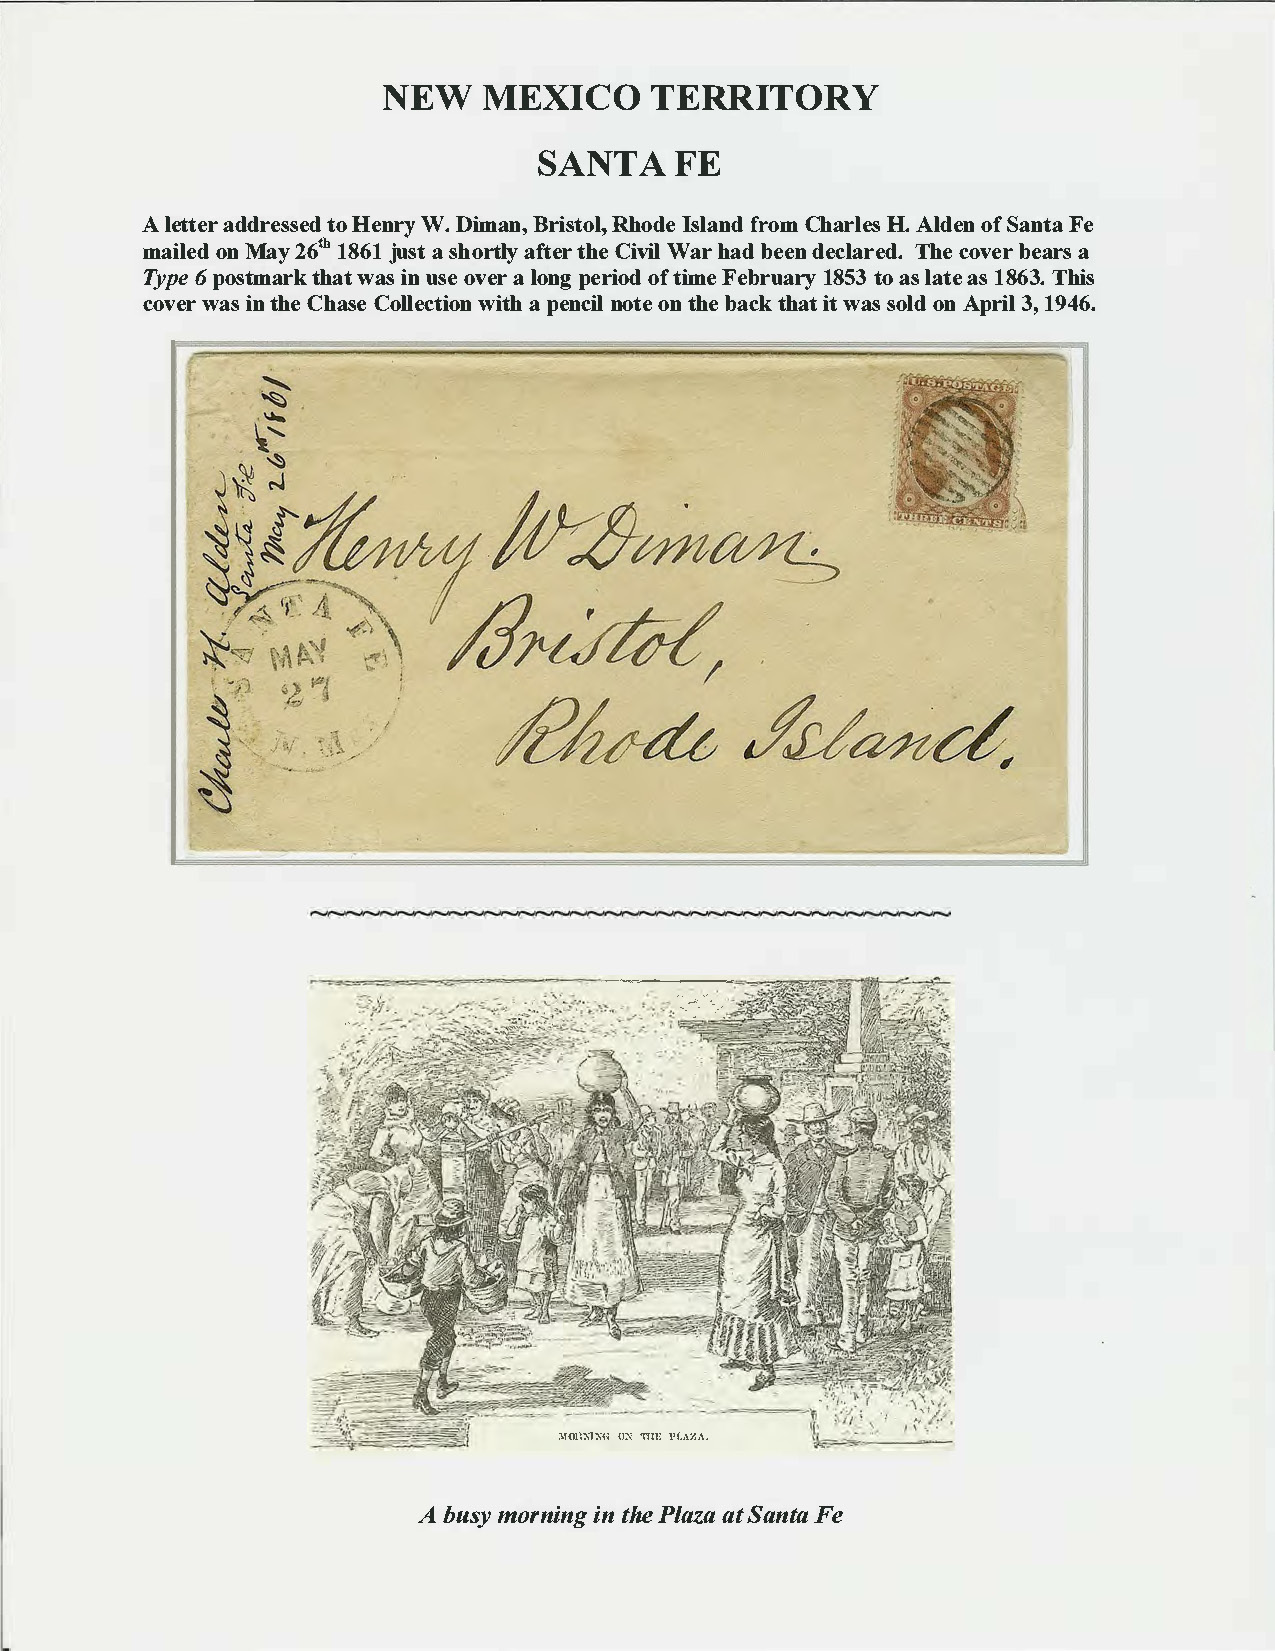 NEW MEXICO TERRITORY
SANTA FE
A letter addressed to Henry W. Diman, Bristol, Rhode Island from Charles H. Alden of Santa Fe
mailed on May 26th 1861 just a shortly after the Civil War had been declared. The cover bears a
Type 6 postmark that was in use over a long period of time February 1853 to as late as 1863. This
cover was in the Chase Collection with a pencil note on the back that it was sold on April 3, 1946.
Charles H. Alden
Santa Fe
May 26th 1861
U.S. POSTAGE
THREE CENTS
Henry W Diman.
Bristol,
Rhode Island.
SANTA FE
MAY
27
N.M.
MORNING ON THE PLAZA.
A busy morning in the Plaza at Santa Fe